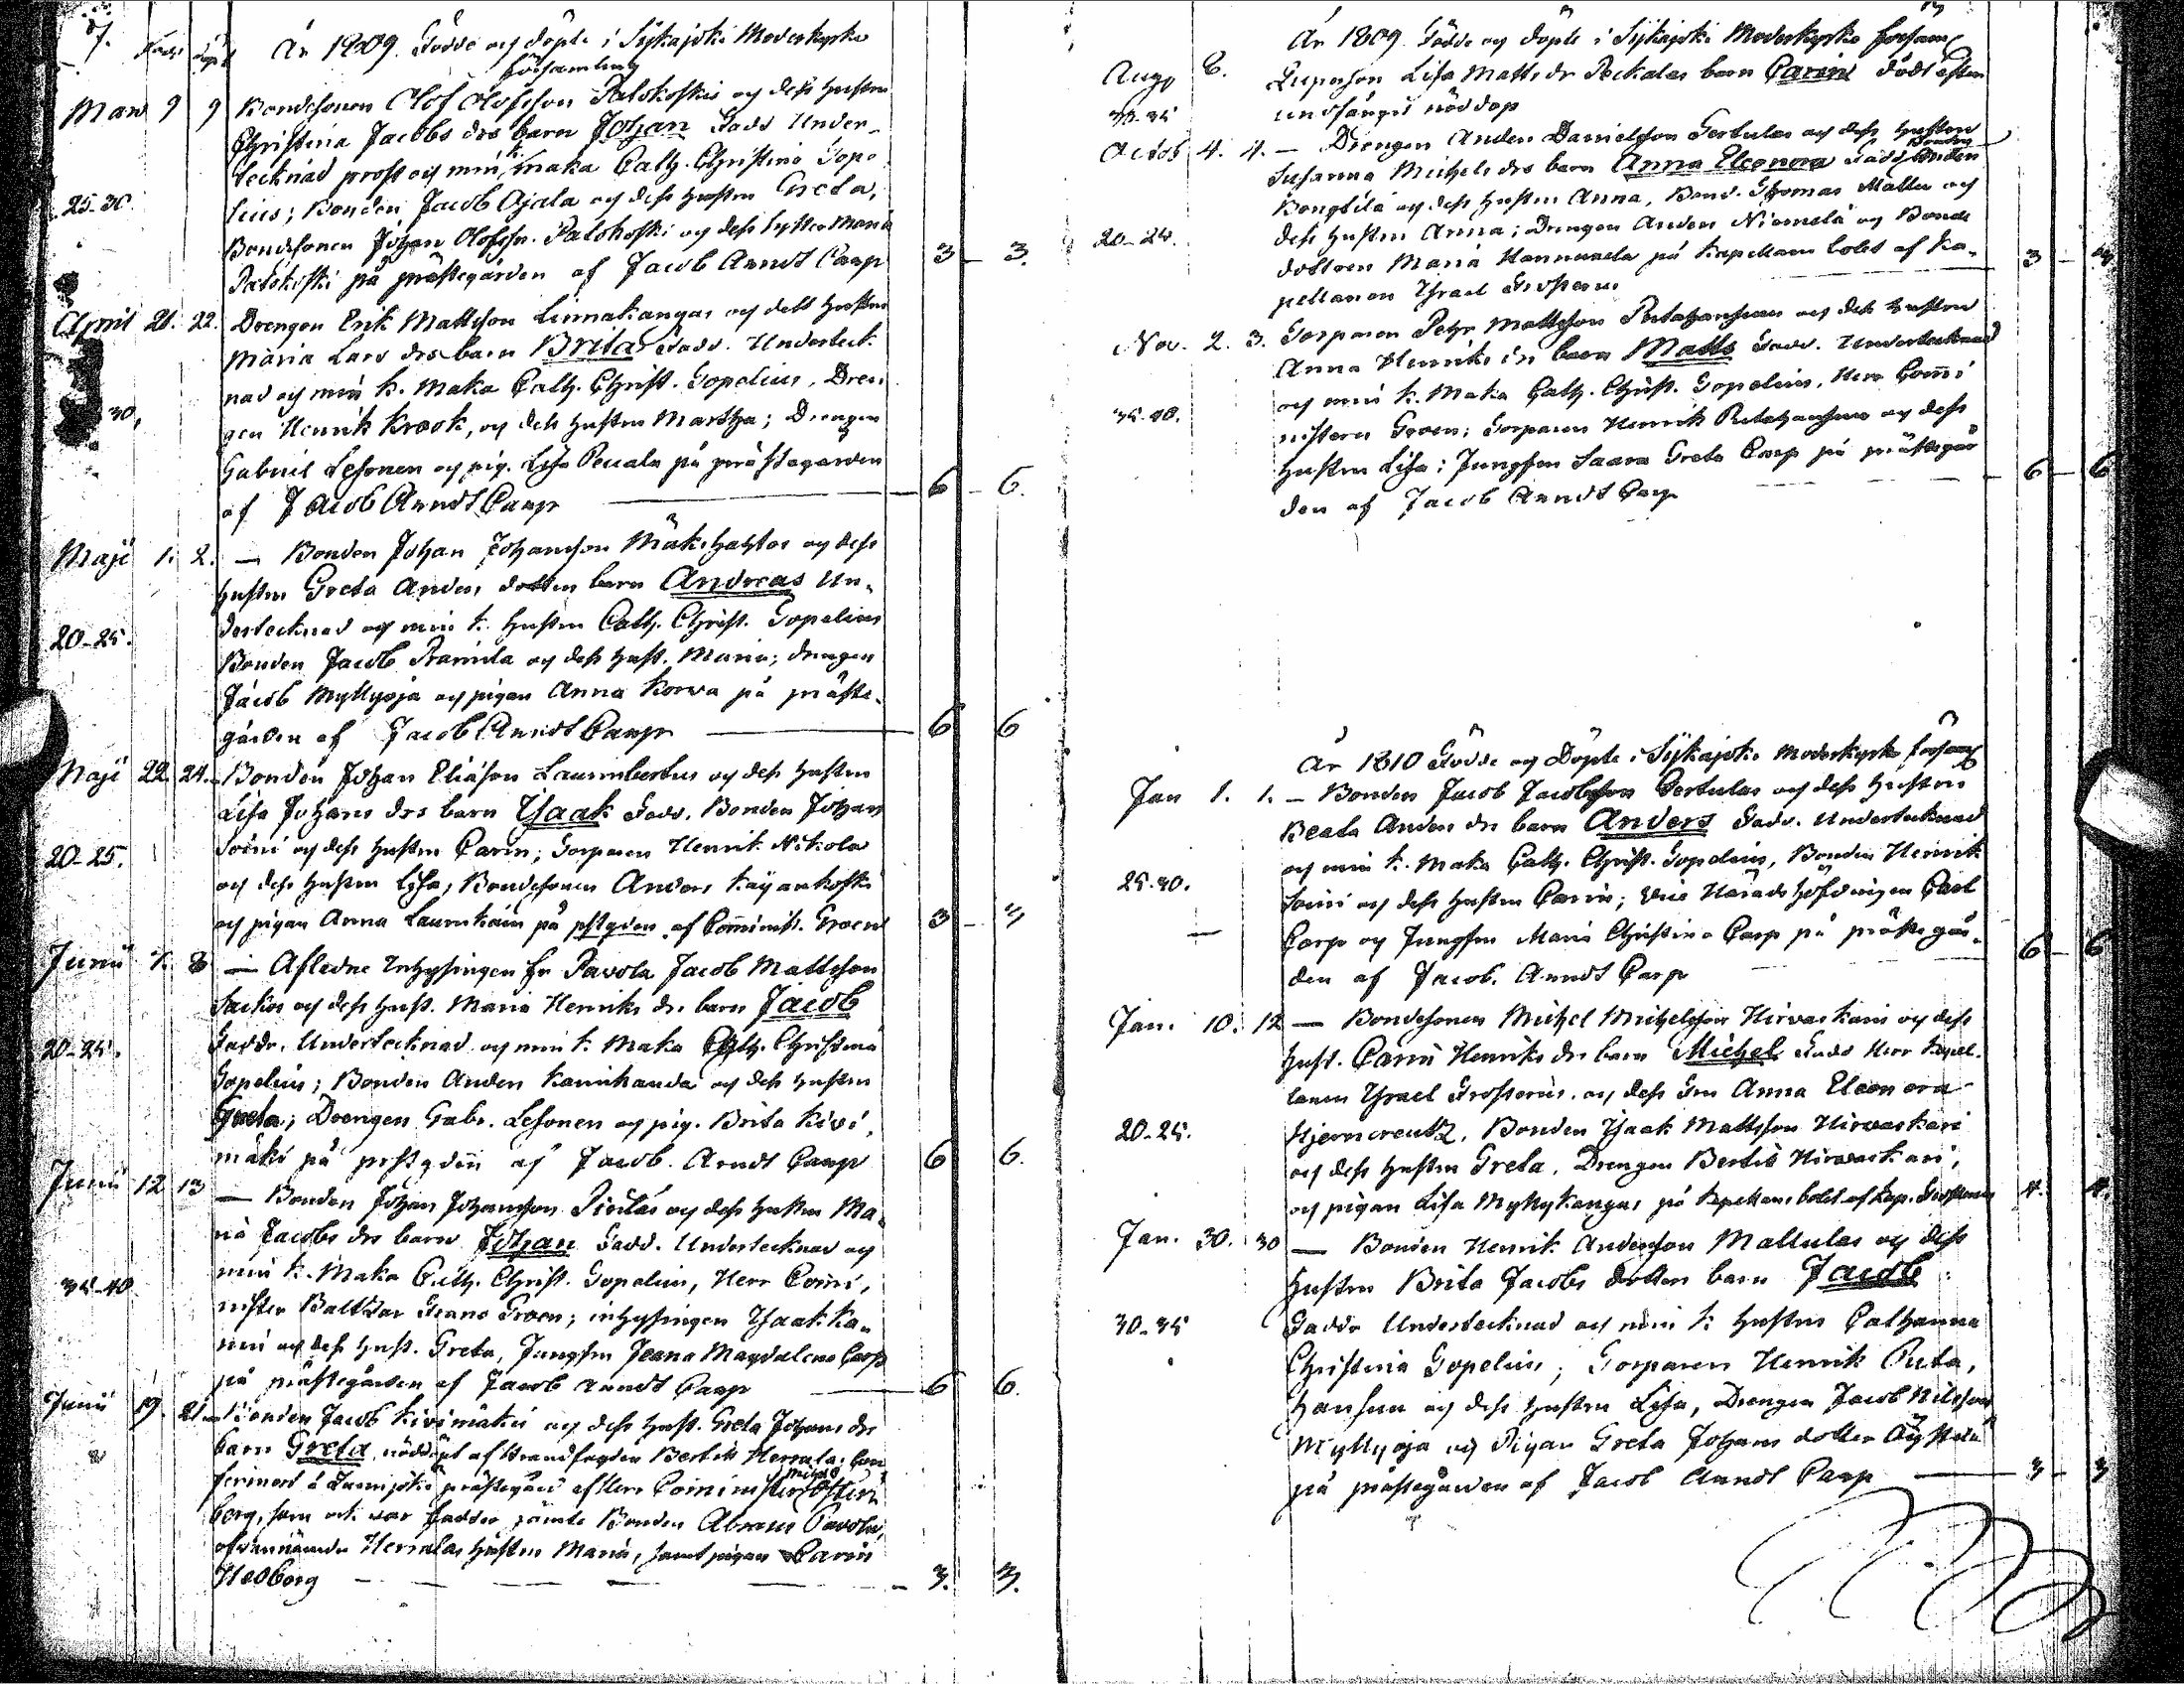 7.
År 1809. Födde och döpte i Sijkajoki Moderkyrko
församling
Mars 9 9 Bondesonen Olof Olofsson Palokoskis och dess hustru
Christina Jacobs drs barn Johan Fadd. Under-
tecknad prost och min k. maka Cath. Christina Gope-
25-30. lius; Bonden Jacob Ojala och dess hustru Greta,
Bondesonen Johan Olofssn. Palokoski och dess syster Maria
Palokoski på prästegården af Jacob Anndt Carp 3 - 3.
April 21. 22. Drengen Erik Mattsson Linnakangas och dess hustru
Maria Lars drs barn Brita Fadd. Underteck-
nad och min k. Maka Cath. Christ. Gopelius, Dren-
30. gen Henrik Krook, och dess hustru Martha; Drengen
Gabriel Lesonen och pig. Lisa på prästegården
af Jacob Anndt Carp 6 - 6.
Maji 1. 2. — Bonden Johan Johansson och dess
hustru Greta Anders dotters barn Andreas Un-
dertecknad och min k. hustru Cath. Christ. Gopelius
20-25. Bonden Jacob och dess hust. Maria; drengen
Jacob Myllyoja och pigan Anna Korva på präste-
gården af Jacob Anndt Carp 6 6
Maji 22 24. Bonden Johan Eliasson och dess hustru
Lisa Johans drs barn Isaak Fadd. Bonden Johan
Soini och dess hustru Carin; Torparen Henrik Nikola
20-25. och dess hustru Lisa, Bondesonen Anders
och pigan Anna på af Comminist. Groen 3 -
Junii 7. 8 — Afledne Inhysingen fr. Pavola Jacob Mattsson
och dess hust. Maria Henriks dr. barn Jacob
20-25. Faddr. Undertecknad och min k. Maka Cath. Christina
Gopelius; Bonden Anders och dess hustru
Greta; Drengen Gabr. Lesonen och pig. Brita Kivi-
mäki på af Jacob. Arndt Carp 6 6.
Junii 12 13 — Bonden Johan Johansson och dess hustru Ma-
ria Jacobs drs barn Johan Fadd. Undertecknad och
35-40 min k. Maka Cath. Christ. Gopelius, Herr Comi-
nister Groen; inhysingen Isaak
och dess hust. Greta, Jungfrun Jeana Magdalena Carp
på prästegården af Jacob Anndt Carp 6 6.
Junii 19. 21. Bonden Jacob Kivimäkis och dess hust. Greta Johans drs
barn Greta, nöddöpt af Bertil Con-
firmerad å Lumijoki prästegård af Herr Cominister
berg, som ock var fadder jämte Bonden Pavola,
ofvannämnde hustru Maria, samt pigan Carin
Hedborg 3. 3.
År 1809. Födde och döpte i Sijkajoki Moderkyrko församl
Aug. 8. Lisa Matts dr barn Carin dödt efter
35 undfånget nöddop
Octob 4. 4. — Drengen Anders Danielsson Tertulas och dess hustru
Susanna Michels drs barn Anna Eleonora Fadd. Bonden
och dess hustru Anna, Bond. Thomas Mattu och
20-24. dess hustru Anna; Drengen Anders Niemelä och Bonde
dottren Maria Hannunela på Kapellans bolet af Ka-
pellanen Israel 3 -
Nov. 2. 3. Torparen Petr Mattsson och dess hustru
Anna Henriks drs barn Matts Fadd. Undertecknad
och min k. Maka Cath. Christ. Gopelius, Herr Comi-
35-40. nistern Groen; Torparen Henrik och dess
hustru Lisa; Jungfrun Saara Greta Carp på prästegår-
den af Jacob Anndt Carp 6 - 6
År 1810 Födde och Döpte i Sijkajoki Moderkyrko församl
Jan 1. 1. — Bonden Jacob Jacobsson Tertulas och dess hustru
Beata Anders drs barn Anders Fadd. Undertecknad
och min k. Maka Cath. Christ. Gopelius, Bonden Henrik
25-30. Soini och dess hustru Carin; Vice Häradshöfdingen Carl
Carp och Jungfrun Maria Christina Carp på prästegår-
den af Jacob. Anndt Carp 6 - 6
Jan. 10. 12 — Bondesonen Michel Michelsson Hirvaskaris och dess
hust. Carin Henriks drs barn Michel Fadd Herr Kapel-
lanen Israel och dess Fru Anna Eleonora
20-25. Hjerncreutz, Bonden Isaak Mattsson Hirvaskari
och dess hustru Greta, Drengen Bertil Hirvaskari,
och pigan Lisa Myllykangas på Kapellans bolet af Kap. 4. 4.
Jan. 30. 30 — Bonden Henrik Andersson Mattulas och dess
hustru Brita Jacobs dotters barn Jacob
30-35 Faddr Undertecknad och min k hustru Catharina
Christina Gopelius; Torparen Henrik
och dess hustru Lisa, Drengen Jacob Nilsson
Myllyoja och Pigan Greta Johans dotter
på prästegården af Jacob Anndt Carp 3 3